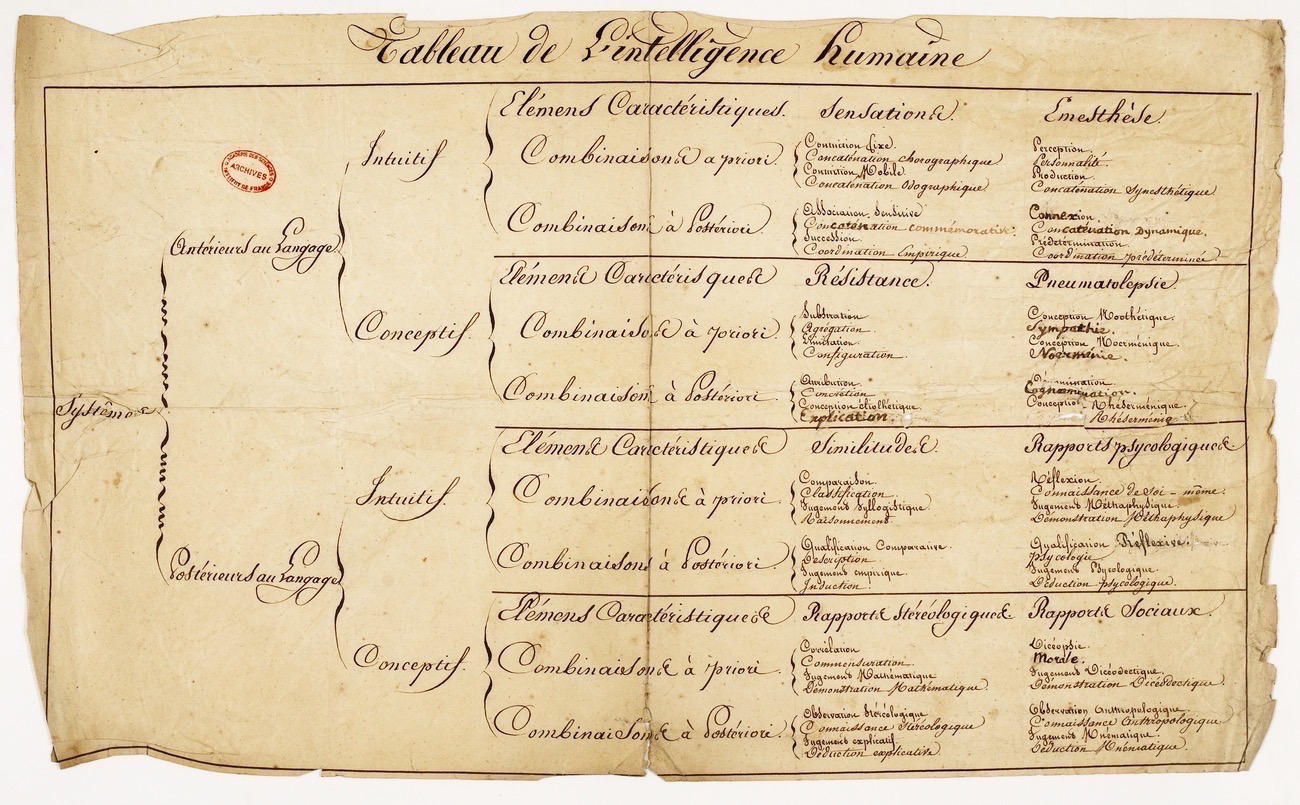 Tableau de L'intelligence humaine
Systêmes
Antérieurs au Langage
Intuitif
Elémens Caractéristiques. Sensations. Emesthèse.
Combinaisons a priori.
Contuition Fixe.
Concaténation chorographique
Contuition Mobile.
Concaténation Odographique
Perception.
Personnalité.
Production.
Concaténation Synesthétique
Combinaisons à Postériori.
Association Sensitive
Concaténation commémorative.
Succession.
Coordination Empirique
Connexion.
Concaténation Dynamique.
Prédétermination.
Coordination prédéterminée
Conceptif.
Elémens Caractérisques Résistance. Pneumatolepsie.
Combinaisons à priori.
Substration
Agrégation.
Limitation.
Configuration.
Conception Noothétique.
Sympathie.
Conception Noerménique.
Noerménie.
Combinaisons à Postériori
Attribution.
Concrétion
Conception étiolhétique.
Explication.
Cognomination.
Conception Théserménique.
Postérieurs au Langage
Intuitif.
Elémens Caractéristiques Similitudes. Rapports psycologiques.
Combinaisons à priori.
Comparaison.
Classification
Jugemens Syllogistique
Raisonnement
Réflexion.
Connaissance de soi-même.
Jugemens Méthaphysique.
Démonstration Méthaphysique
Combinaisons à Postériori
Qualification Comparative.
Description.
Jugemens empirique.
Induction.
Qualification Réflexive.
Psycologie
Jugemens Psycologique.
Déduction psycologique.
Conceptif.
Elémens Caractéristiques Rapports Stéréologiques. Rapports Sociaux.
Combinaisons à priori.
Corrélation
Commensuration.
Jugemens Mathématique
Démonstration Mathématique
Dicéopsie.
Morale.
Jugemens Dicéodectique.
Démonstration Dicéodectique.
Combinaisons à Postériori.
Observation Stéréologique
Connaissance Stéréologique
Jugemens explicatif
Déduction explicative.
Observation Anthropologique.
Connaissance Anthropologique
Jugemens Mnématique.
Déduction Mnématique.
ACADÉMIE DES SCIENCES
ARCHIVES
INSTITUT DE FRANCE